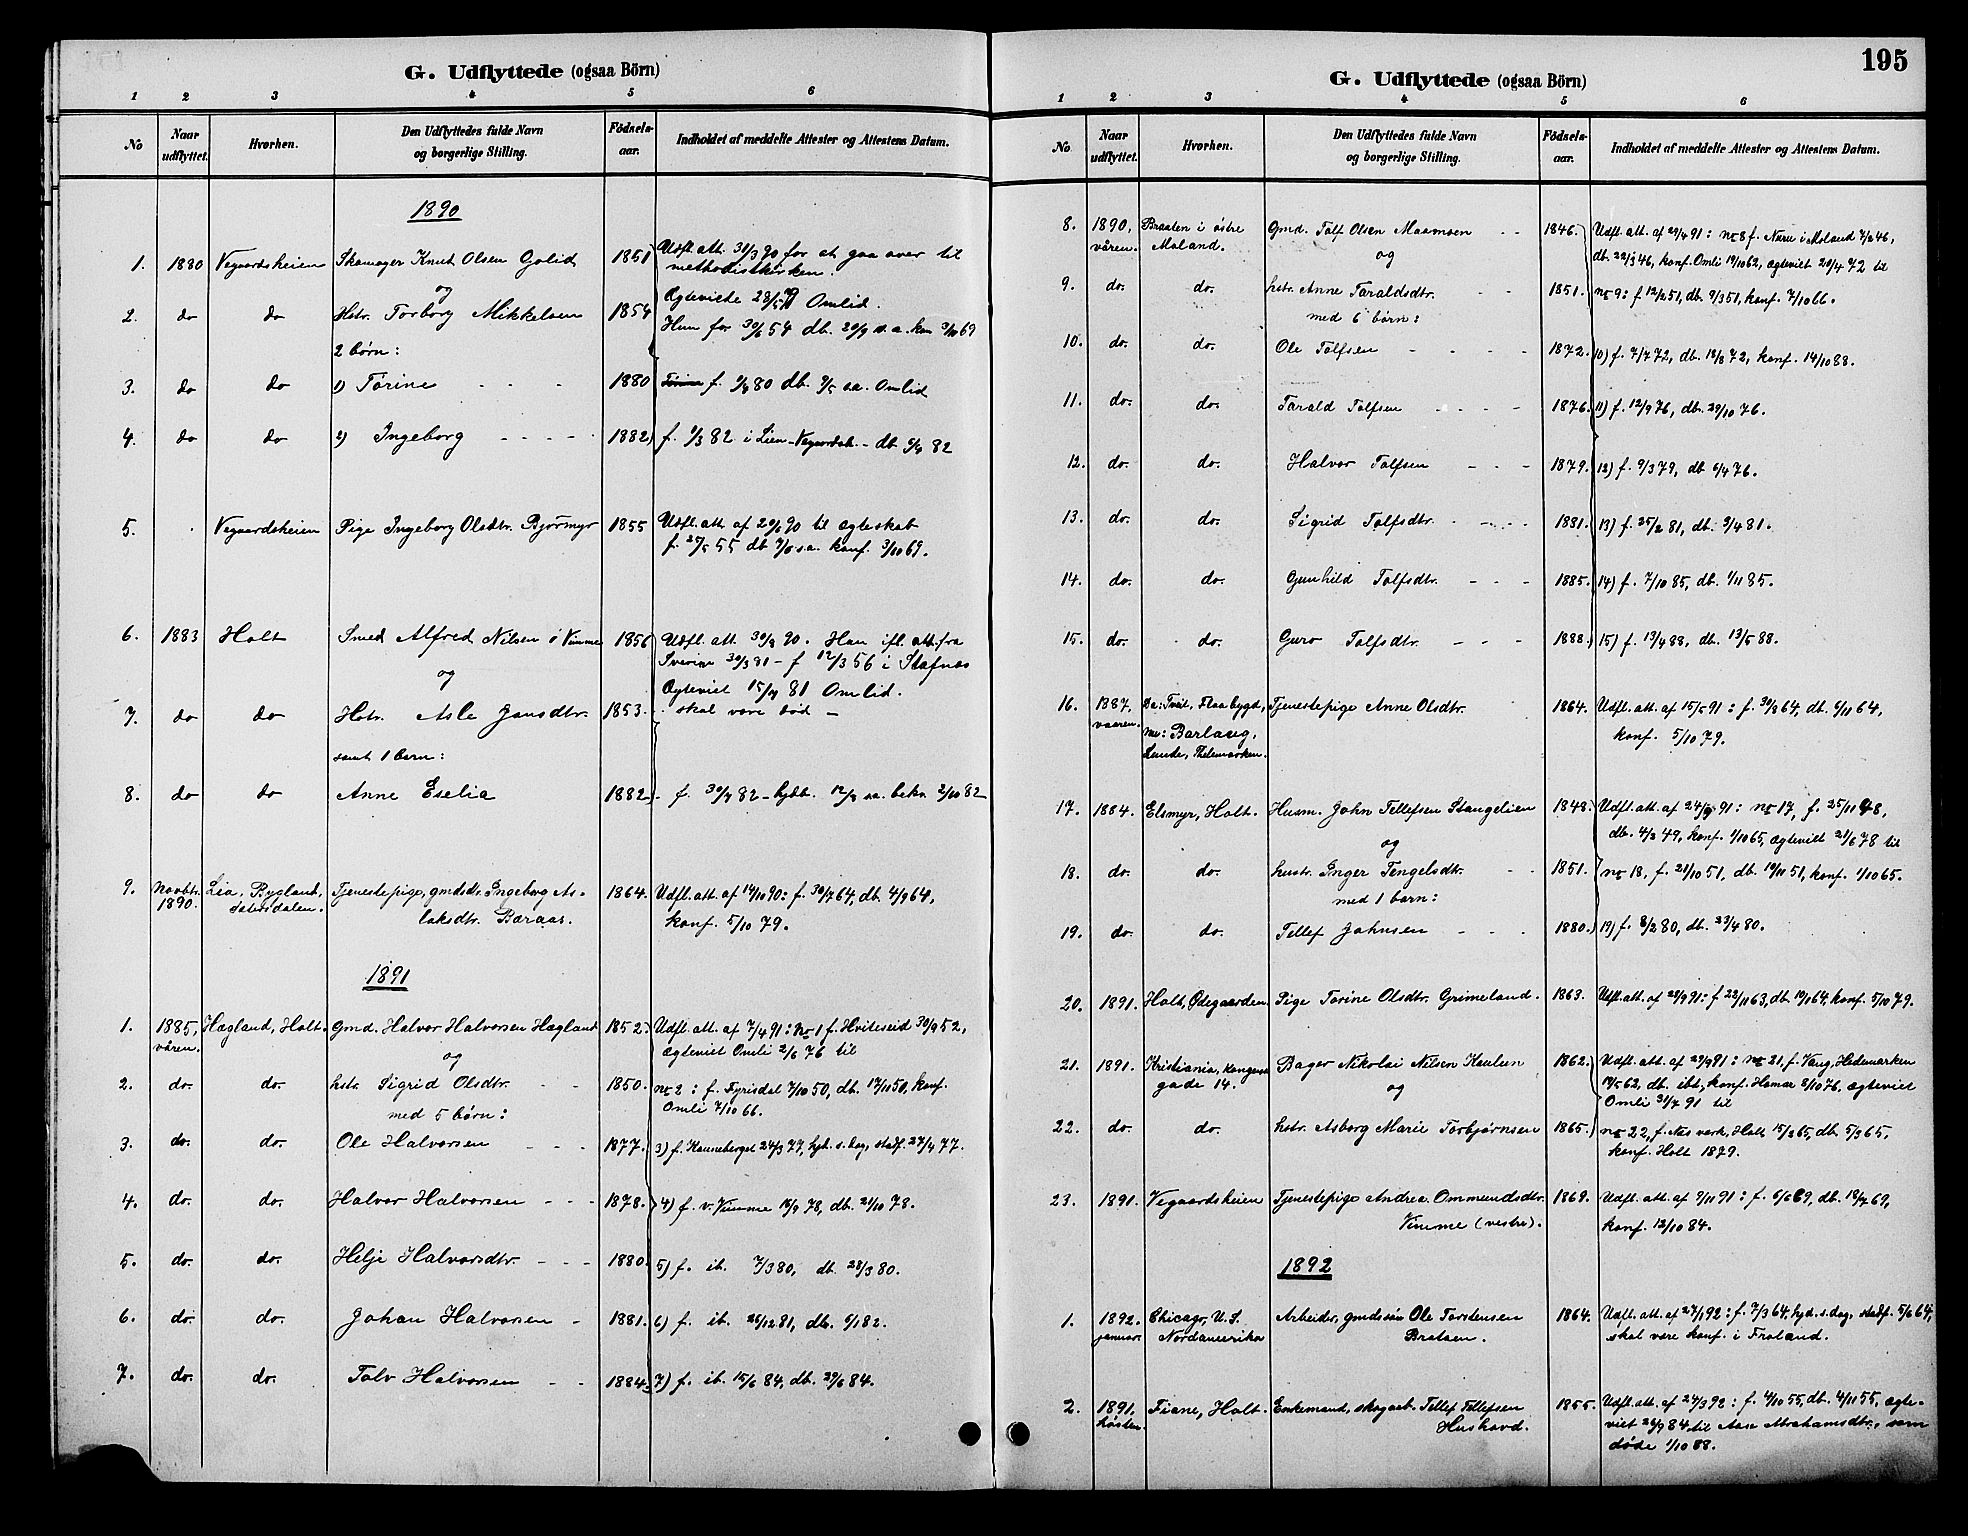 G. Udflyttede (ogsaa Börn)
1 2 3 4 5 6
No Naar udflyttet. Hvorhen. Den Udflyttedes fulde Navn og borgerlige Stilling. Fødsels-aar. Indholdet af meddelte Attester og Attestens Datum.
1890
1. 1880 Vegaardsheien Skomager Knut Olsen Golid 1851 Udfl. att. 31/3 90 for at gaa over til
methodistkirken.
og Ægteviede 28/5 Omlid.
2. do do Hstr. Torborg Mikkelsen 1854 Hun for 30/6 54 db. 20/9 s.a. kon 3/10 69
2 børn:
3. do do 1) Tørine - - - 1880 f. 80 db. s.a. Omlid
4. do do 2) Ingeborg - - - - 1882 f. 1/3 82 i Lien - Vegaardsh. - db 82
5. Vegaardsheien Pige Ingeborg Olsdtr. Bjørmyr 1855 Udfl. att. af 20/6 90 til ægteskab
f. 25/5 55 db s.a. konf. 3/10 69.
6. 1883 Holt Smed Alfred Nilsen i Vimme 1856 Udfl. att. 30/8 90. Han ifl. att. fra
30/3 81 - f 12/3 56 i Stafnæs
og Ægteviet 15/4 81 Omlid.
7. do do Hstr. Asle Jensdtr. 1853. skal være død -
samt 1 barn:
8. do do Anne Eselia 1882 - f. 82 - hjdb. s.a. bekr. 2/10 82
9. Novbr. Lia, Bygland, Tjenestepige, gmdsdtr. Ingeborg As- 1864. Udfl. att. af 14/10 90: f. 30/7 64, db. 4/9 64,
1890. Sætersdalen. laksdtr. Baraas. konf. 5/10 79.
1891
1. 1885, Hægland, Holt. Gmd. Halvor Halvorsen Hægland 1852. Udfl. att. af 7/4 91: no 1 f. Hviteseid 30/9 52,
våren. og ægteviet Omli 2/6 76 til
2. do. do. hstr. Sigrid Olsdtr. - - 1850. no 2: f. Fyrisdal 7/10 50, db. 17/11 50, konf.
med 5 børn: Omli 7/10 66.
3. do. do. Ole Halvorsen - - - 1877. 3) f. 24/3 77, hjd. s. dag, stadf. 27/4 77.
4. do. do. Halvor Halvorsen - - - 1878. 4) f. v. Vimme 16/9 78, db. 21/10 78.
5. do. do. Helje Halvorsdtr. - - - 1880. 5) f. ib. 7/3 80, db. 28/3 80.
6. do. do. Johan Halvorsen - 1881. 6) f. ib. 25/12 81, db. 6/1 82.
7. do. do. Tolv Halvorsen - - 1884. 7) f. ib. 15/6 84, db. 29/6 84.
195
G. Udflyttede (ogsaa Börn)
1 2 3 4 5 6
No Naar udflyttet. Hvorhen. Den Udflyttedes fulde Navn og borgerlige Stilling. Fødsels-aar. Indholdet af meddelte Attester og Attestens Datum.
8. 1890, Braaten i østre Gmd. Tolf Olsen Maamoen - - 1846. Udfl. att. af 29/4 91: no 8 f. i Moland 7/2 46,
våren. Moland. og db. 22/3 46, konf. Omli 19/10 62, ægteviet 20/4 72 til
9. do. do. hstr. Anne Taraldsdtr. - - 1851. no 9: f 12/2 51, db. 9/3 51, konf. 7/10 66.
med 6 børn:
10. do. do. Ole Tolfsen - - - - 1872. 10) f. 7/7 72, db. 18/8 72, konf. 14/10 88.
11. do. do. Tarald Tolfsen - - - - 1876. 11) f. 12/9 76, db. 29/10 76.
12. do. do. Halvor Tolfsen - - - 1879. 12) f. 9/3 79, db. 6/4 76.
13. do. do. Sigrid Tolfsdtr. - - - - 1881. 13) f. 25/2 81, db. 3/4 81.
14. do. do. Gunhild Tolfsdtr. - - - 1885. 14) f. 7/10 85, db. 1/11 85.
15. do. do. Guro Tolfsdtr. - - - 1888. 15) f. 13/4 88, db. 13/5 88.
16. 1887, Da: Tveit, Flaabygd, Tjenestepige Anne Olsdtr. 1864. Udfl. att. af 15/5 91: f. 30/8 64, db. 6/11 64,
vaaren. nu: Barlaug, konf. 5/10 79.
Lunde, Thelemarken.
17. 1884. Elsmyr, Holt. Husm. John Tellefsen Stangelien 1848. Udfl. att. af 24/9 91: no 17, f. 25/11 48,
og db. 4/3 49, konf. 1/10 65, ægteviet 21/6 78 til
18. do. do. hustr. Inger Tengelsdtr. - - 1851. no 18, f. 21/10 51, db. 19/11 51, konf. 1/10 65.
med 1 barn:
19. do. do. Tellef Johnsen - - - 1880. 19) f. 8/2 80, db. 23/4 80.
20. 1891. Holt, Ødegaarden. Pige Torine Olsdtr. Grimeland. 1863. Udfl. att. af 29/9 91: f 22/11 63, db. 10/1 64, konf. 5/10 79.
21. 1891. Kristiania, Kongens Bager Nikolai Nilsen Kaulum 1862. Udfl. att. af 29/9 91: no 21, f. Vang, Hedemarken
gade 14. og 62, db. ibt, konf. Hamar 8/10 76, ægteviet
Omli 31/7 91 til
22. do. do. hstr. Asborg Marie Torbjørnsen 1865. no 22, f. Næs værk, Holt 15/2 65, db. 5/3 65,
konf. Holt 1879.
23. 1891. Vegaardsheien Tjenestepige Andrea Ommundsdtr. 1869. Udfl. att. af 9/11 91: f. 6/6 69, db. 18/7 69,
Vimme (vestre). konf. 12/10 84.
1892
1. 1892. Chicago, U.S. Arbeider, gmdssøn Ole Torstensen 1864. Udfl. att. af 27/1 92: f. 7/3 64, hjd. s. dag, stadf. 5/6 64,
januar. Nordamerika Bratsen. skal være konf. i Froland.
2. 1891. Fiane, Holt. Enkemand, skogarb. Tellef Tellefsen 1855. Udfl. att. af 24/3 92: f. 4/10 55, db. 4/11 55, ægte-
høsten. Huskovd. viet 26/9 84 til Aase Abrahamsdtr., som
døde 1/10 88.